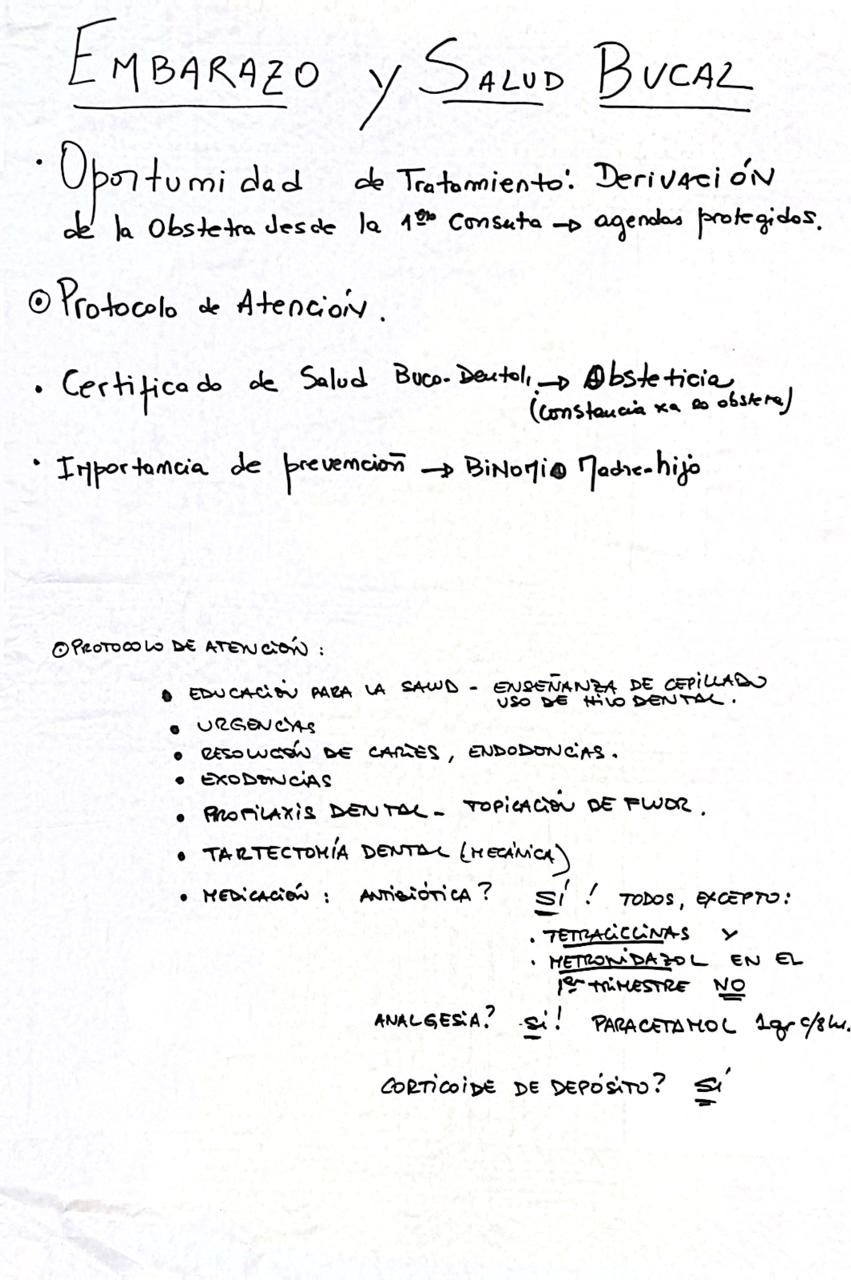 EMBARAZO y SALUD BUCAL
· Oportumidad de Tratamiento: DERIVACIÓN
de la Obstetra desde la 1era Consuta → agendas protegidos.
⊙ Protocolo de Atención.
· Certificado de Salud Buco-Dental, → Obsteticia
(constancia xa obstetra)
· Importancia de prevención → BiNOMio Madre-hijo
⊙ PROTOCOLO DE ATENCIÓN:
• EDUCACIÓN PARA LA SALUD - ENSEÑANZA DE CEPILLADO
USO DE HILO DENTAL.
• URGENCIAS
• RESOLUCIÓN DE CARIES, ENDODONCIAS.
• EXODONCIAS
• PROFILAXIS DENTAL - TOPICACIÓN DE FLUOR.
• TARTECTOMÍA DENTAL (MECÁNICA)
• MEDICACIÓN: ANTIBIÓTICA? SÍ! TODOS, EXCEPTO:
· TETRACICLINAS Y
· METRONIDAZOL EN EL
1er TRIMESTRE NO
ANALGESIA? SÍ! PARACETAMOL 1gr c/8hs.
CORTICOIDE DE DEPÓSITO? SÍ